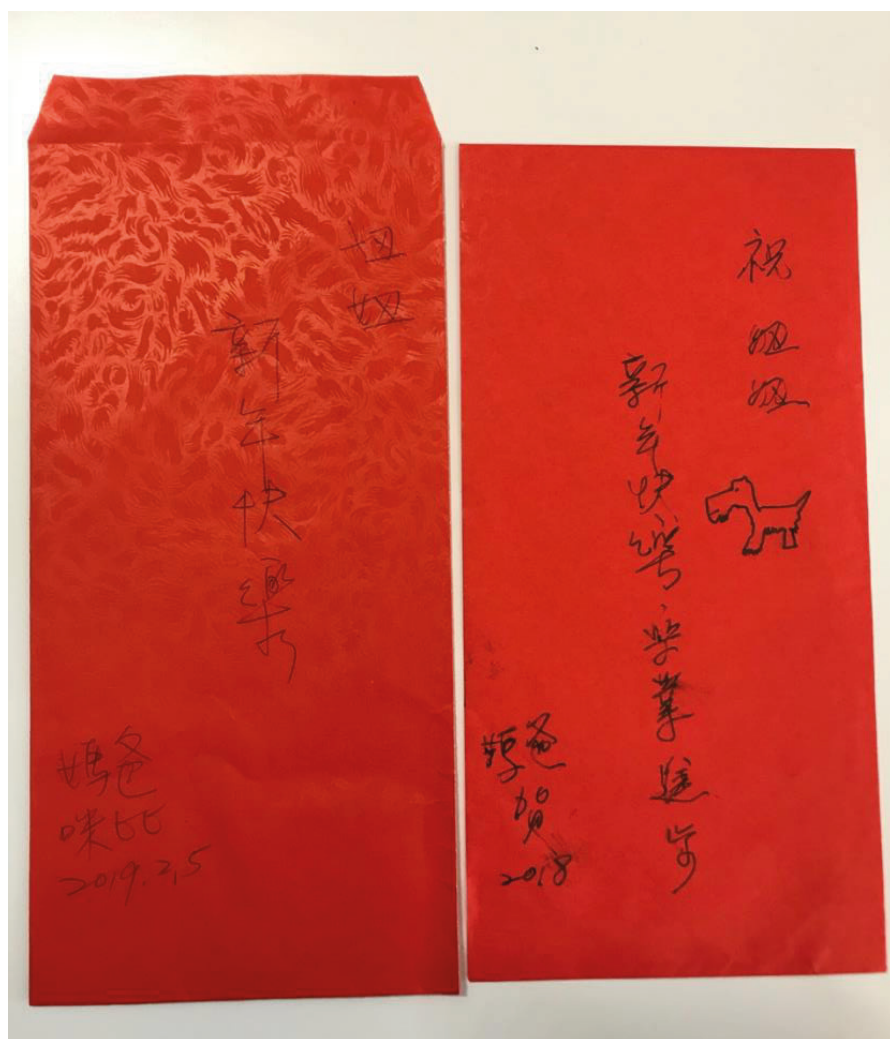 妞妞
新年快樂
爸比
媽咪
2019.2.5
祝妞妞
新年快樂學業進步
爸媽
賀
2018